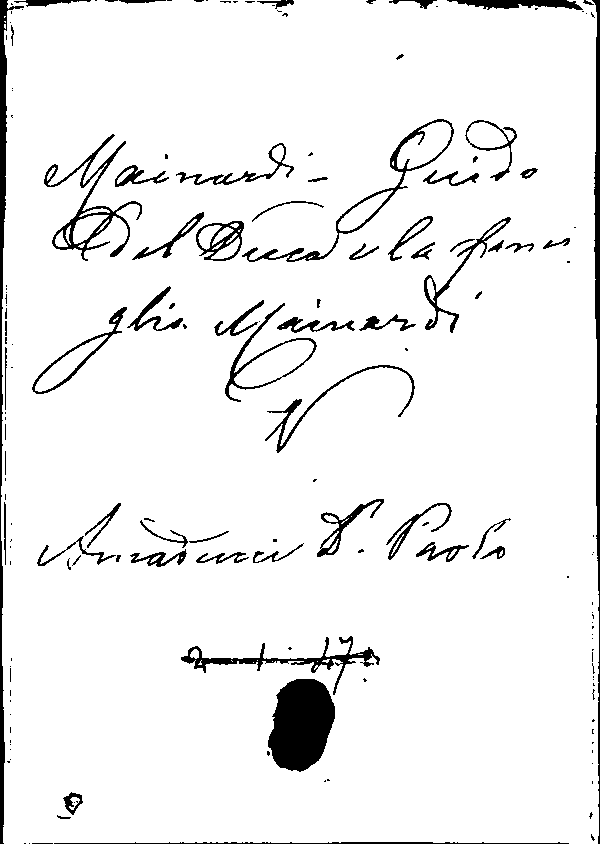 Mainardi - Guido
del Duca e la fami
glia Mainardi
V
Amaducci D. Paolo